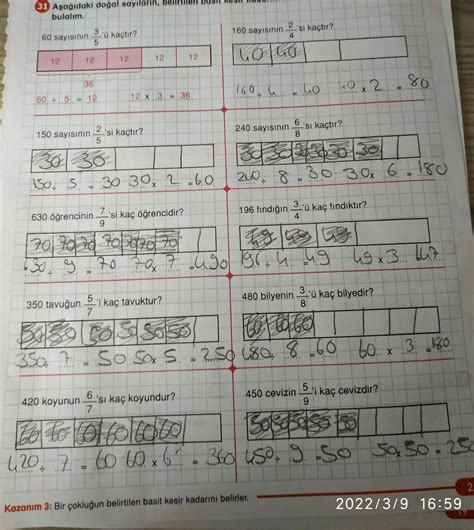 31 Aşağıdaki doğal sayıların, belirtilen basit kesir kadarını
bulalım.
60 sayısının 3/5 'ü kaçtır?
12 12 12 12 12
36
60 ÷ 5 = 12 12 x 3 = 36
160 sayısının 2/4 'si kaçtır?
40 40
160 ÷ 4 = 40 40 x 2 = 80
150 sayısının 2/5 'si kaçtır?
30 30
150 ÷ 5 = 30 30 x 2 = 60
240 sayısının 6/8 'si kaçtır?
30 30 30 30 30 30
240 ÷ 8 = 30 30 x 6 = 180
630 öğrencinin 7/9 'si kaç öğrencidir?
70 70 70 70 70 70 70
630 ÷ 9 = 70 70 x 7 = 490
196 fındığın 3/4 'ü kaç fındıktır?
49 49 49
196 ÷ 4 = 49 49 x 3 = 147
350 tavuğun 5/7 'i kaç tavuktur?
50 50 50 50 50
350 ÷ 7 = 50 50 x 5 = 250
480 bilyenin 3/8 'ü kaç bilyedir?
60 60 60
480 ÷ 8 = 60 60 x 3 = 180
420 koyunun 6/7 'si kaç koyundur?
60 60 60 60 60 60
420 ÷ 7 = 60 60 x 6 = 360
450 cevizin 5/9 'i kaç cevizdir?
50 50 50 50 50
450 ÷ 9 = 50
Kazanım 3: Bir çokluğun belirtilen basit kesir kadarını belirler.
2022/3/9 16:59